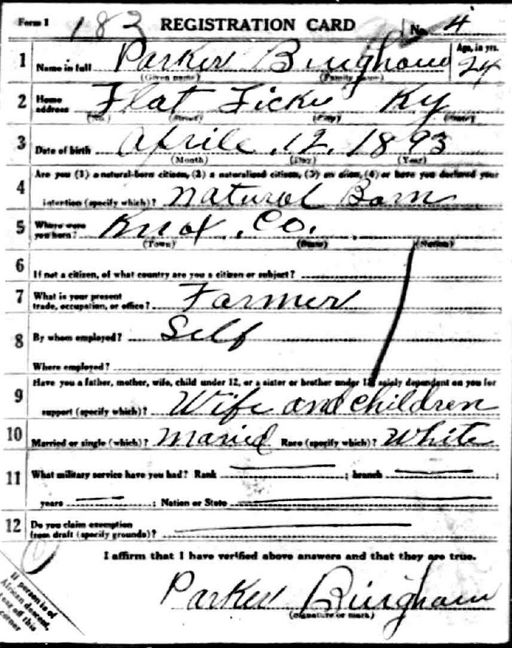 Form 1 183 REGISTRATION CARD No. 4
1 Name in full Parker Bingham Age, in yrs. 24
(Given name) (Family name)
2 Home address Flat Licke Ky
(No.) (Street) (City) (State)
3 Date of birth Aprile . 12 . 1893
(Month) (Day) (Year)
Are you (1) a natural-born citizen, (2) a naturalized citizen, (3) an alien, (4) or have you declared your
4 intention (specify which)? Natural Born
5 Where were you born? Knox . Co.
(Town) (State) (Nation)
6 If not a citizen, of what country are you a citizen or subject?
7 What is your present trade, occupation, or office? Farmer
8 By whom employed? Self
Where employed?
Have you a father, mother, wife, child under 12, or a sister or brother under 12, solely dependent on you for
9 support (specify which)? Wife and children
10 Married or single (which)? Maried Race (specify which)? White
11 What military service have you had? Rank ; branch ;
years ; Nation or State
12 Do you claim exemption from draft (specify grounds)?
I affirm that I have verified above answers and that they are true.
Parker Bingham
(Signature or mark)
If person is of
African descent,
tear off this
corner